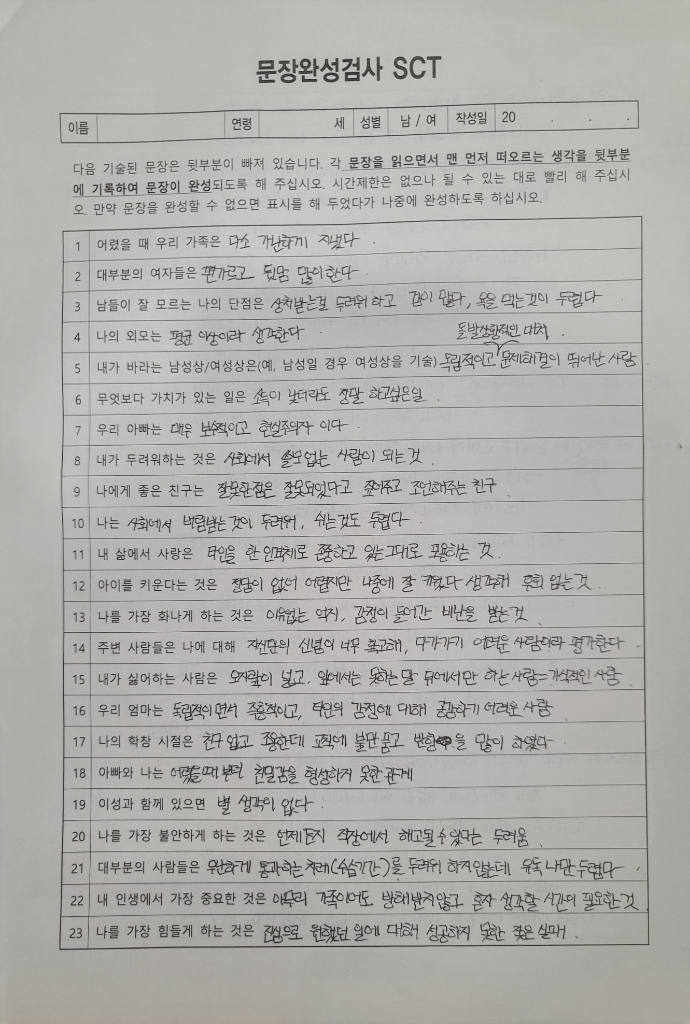 문장완성검사 SCT
이름 연령 세 성별 남 / 여 작성일 20 . . .
다음 기술된 문장은 뒷부분이 빠져 있습니다. 각 문장을 읽으면서 맨 먼저 떠오르는 생각을 뒷부분
에 기록하여 문장이 완성되도록 해 주십시오. 시간제한은 없으나 될 수 있는 대로 빨리 해 주십시
오. 만약 문장을 완성할 수 없으면 표시를 해 두었다가 나중에 완성하도록 하십시오.
1 어렸을 때 우리 가족은 다소 가난하게 지냈다.
2 대부분의 여자들은 편가르고 뒷담 많이 한다.
3 남들이 잘 모르는 나의 단점은 상처받는걸 두려워 하고 겁이 많다, 욕을 먹는 것이 두렵다
4 나의 외모는 평균 이상이라 생각한다
돌발상황적인 대처,
5 내가 바라는 남성상/여성상은(예, 남성일 경우 여성상을 기술) 독립적이고 문제해결이 뛰어난 사람
6 무엇보다 가치가 있는 일은 소득이 낮더라도 정말 하고싶은일.
7 우리 아빠는 매우 보수적이고 현실주의자 이다.
8 내가 두려워하는 것은 사회에서 쓸모없는 사람이 되는 것.
9 나에게 좋은 친구는 잘못한점은 잘못되었다고 짚어주고 조언해주는 친구
10 나는 사회에서 버림받는 것이 두려워, 쉬는것도 두렵다.
11 내 삶에서 사랑은 타인을 한 인격체로 존중하고 있는그대로 포용하는 것.
12 아이를 키운다는 것은 정답이 없어 어렵지만 나중에 잘 키웠다 생각해 후회 없는 것.
13 나를 가장 화나게 하는 것은 이유없는 억지, 감정이 들어간 비난을 받는 것.
14 주변 사람들은 나에 대해 자신만의 신념이 너무 확고해, 다가가기 어려운 사람이라 평가한다.
15 내가 싫어하는 사람은 오지랖이 넓고, 앞에서는 못하는 말 뒤에서만 하는 사람=가식적인 사람.
16 우리 엄마는 독립적이면서 즉흥적이고, 타인의 감정에 대해 공감하기 어려운 사람
17 나의 학창 시절은 친구 없고 조용한데 교칙에 불만 품고 반항을 많이 하였다.
18 아빠와 나는 어렸을때 부터 친밀감을 형성하지 못한 관계
19 이성과 함께 있으면 별 생각이 없다.
20 나를 가장 불안하게 하는 것은 언제든지 직장에서 해고될 수 있다는 두려움.
21 대부분의 사람들은 원만하게 통과하는 차례(수습기간)를 두려워 하지 않는데 유독 나만 두렵다.
22 내 인생에서 가장 중요한 것은 아무리 가족이어도 방해받지 않고 혼자 생각할 시간이 필요한 것.
23 나를 가장 힘들게 하는 것은 진심으로 원했던 일에 대해 성공하지 못한 잦은 실패.